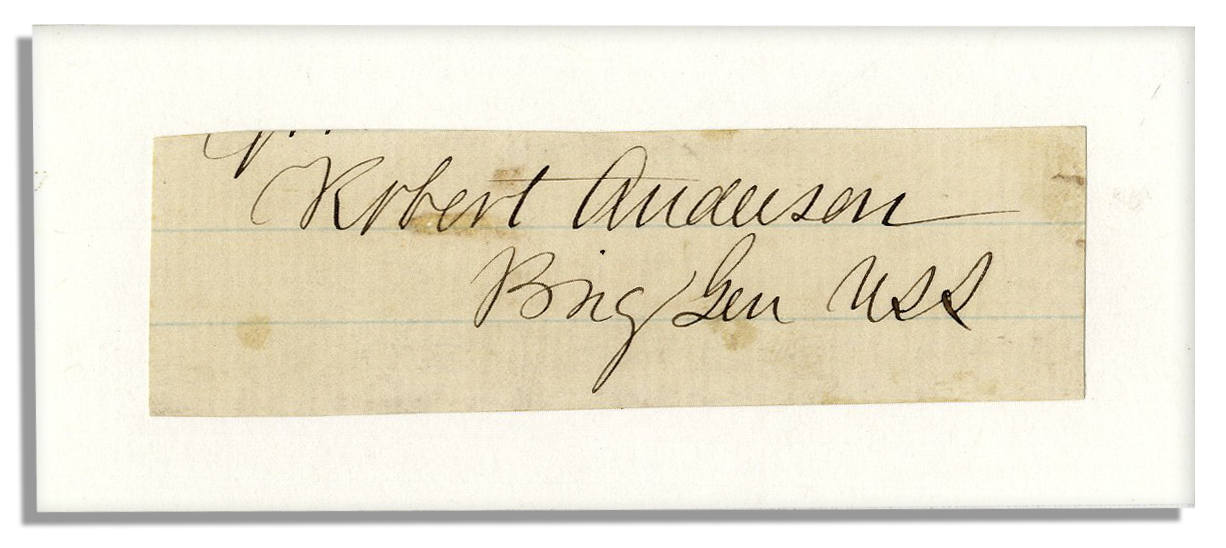 Robert Anderson
Brig Gen USA